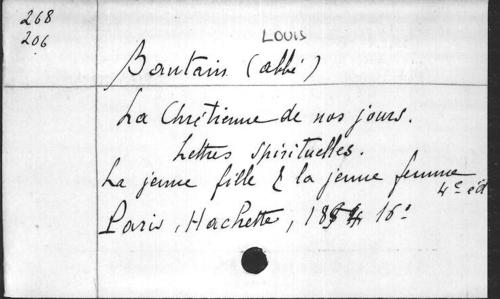 268
206
LOUIS
Bautain (abbé)
La Chrétienne de nos jours.
Lettres spirituelles.
La jeune fille & la jeune femme
4e éd
Paris, Hachette, 16°